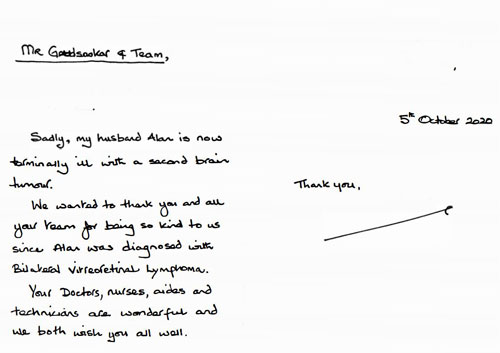 Mr Goodsaokar & Team,
Sadly, my husband Alan is now
terminally ill with a second brain
tumour.
We wanted to thank you and all
your team for being so kind to us
since Alan was diagnosed with
Bilateral Vitreoretinal Lymphoma.
Your Doctors, nurses, aides and
technicians are wonderful and
we both wish you all well.
5th October 2020
Thank you,